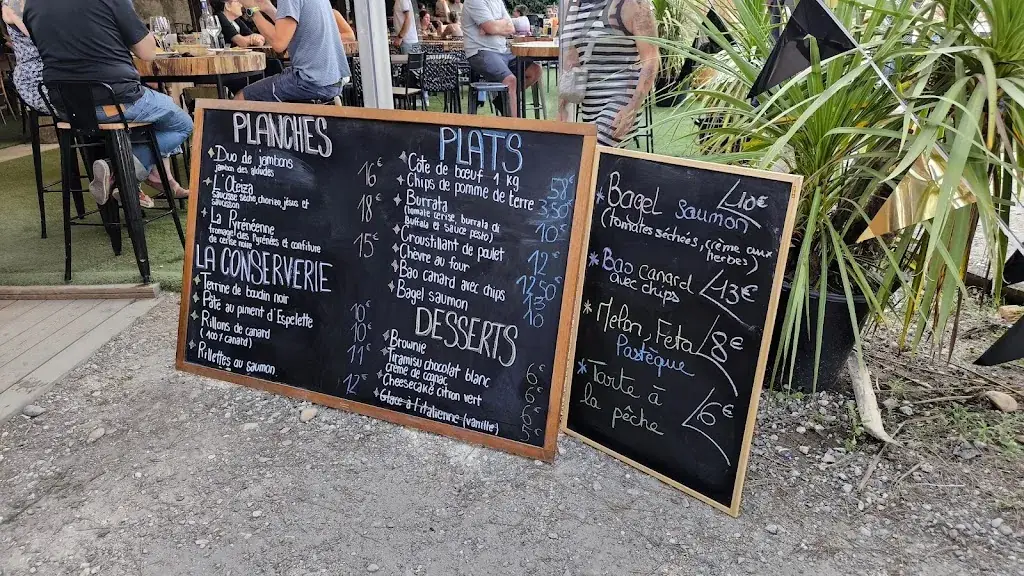 PLANCHES
Duo de jambons
jambon des gloudes
16€
L'Oteiza
saucisse sèche, chorizo, jésus et
saucisson
18€
La Pyrénéenne
fromage des Pyrénées et confiture
de cerise noire
15€
LA CONSERVERIE
Terrine de boudin noir
10€
Pâté au piment d'Espelette
10€
Rillons de canard
(100% canard)
11€
Rillettes au saumon
12€
PLATS
Côte de bœuf 1 kg
58€
Chips de pomme de terre
3.50€
Burrata
(tomate cerise, burrata di
Buffala et sauce pesto)
10€
Croustillant de poulet
12€
Chèvre au four
12.50€
Bao canard avec chips
13
Bagel saumon
10
DESSERTS
Brownie
6€
Tiramisu chocolat blanc
crème de cognac
6€
Cheesecake citron vert
6€
Glace à l'italienne (vanille)
5€
Bagel saumon
10€
(tomates séchées, crème aux
herbes)
Bao canard
avec chips
13€
Melon, Feta
Pastèque
8€
Tarte à
la pêche
6€